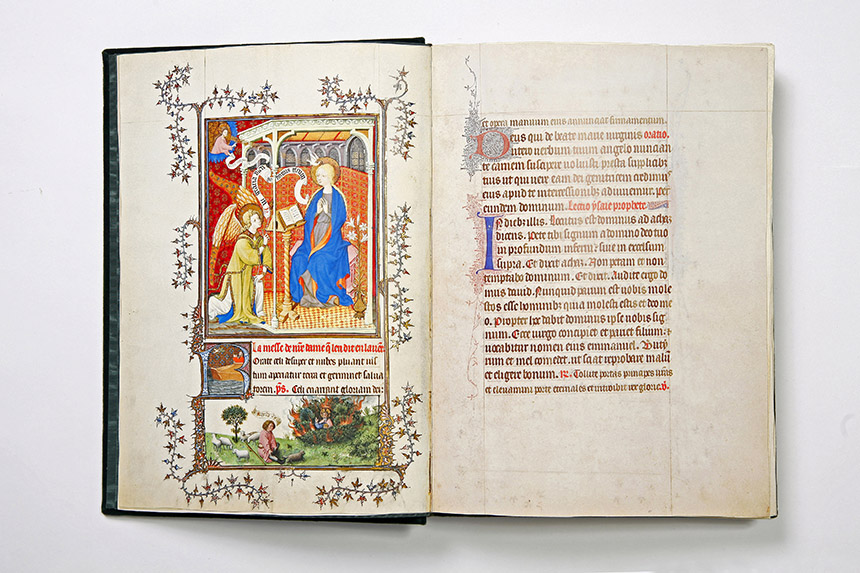 La messe de nre dame q̄ len dit en lauēt.
Orate celi desuper et nubes pluant ius
tum aperiatur terra et germinet salua
torem. ps̄. Celi enarrant gloriam dei:
et opera manuum eius annunciat firmamentum.
Deus qui de beate marie virginis oratio.
utero verbum tuum angelo nuncian
te carnem suscipere voluisti presta supplicibz
tuis ut qui vere eam dei genitricem credimus
eius apud te intercessionibz adiuvemur. per
eundem dominum. Lectio ysaie prophete.
In diebz illis. Locutus est dominus ad achaz
dicens. Pete tibi signum a domino deo tuo
in profundum inferni: siue in excelsum
supra. Et dixit achaz. Non petam et non
temptabo dominum. Et dixit. Audite ergo do
mus dauid. Nunquid parum est uobis moles
tos esse hominibz: quia molesti estis et deo me
o. Propter hoc dabit dominus ipse uobis sig
num. Ecce uirgo concipiet et pariet filium: et
uocabitur nomen eius emmanuel. Buty
rum et mel comedet. ut sciat reprobare malū
et eligere bonum. R̄. Tollite portas principes uestras
et eleuamini porte eternales et introibit rex glorie. v̄.